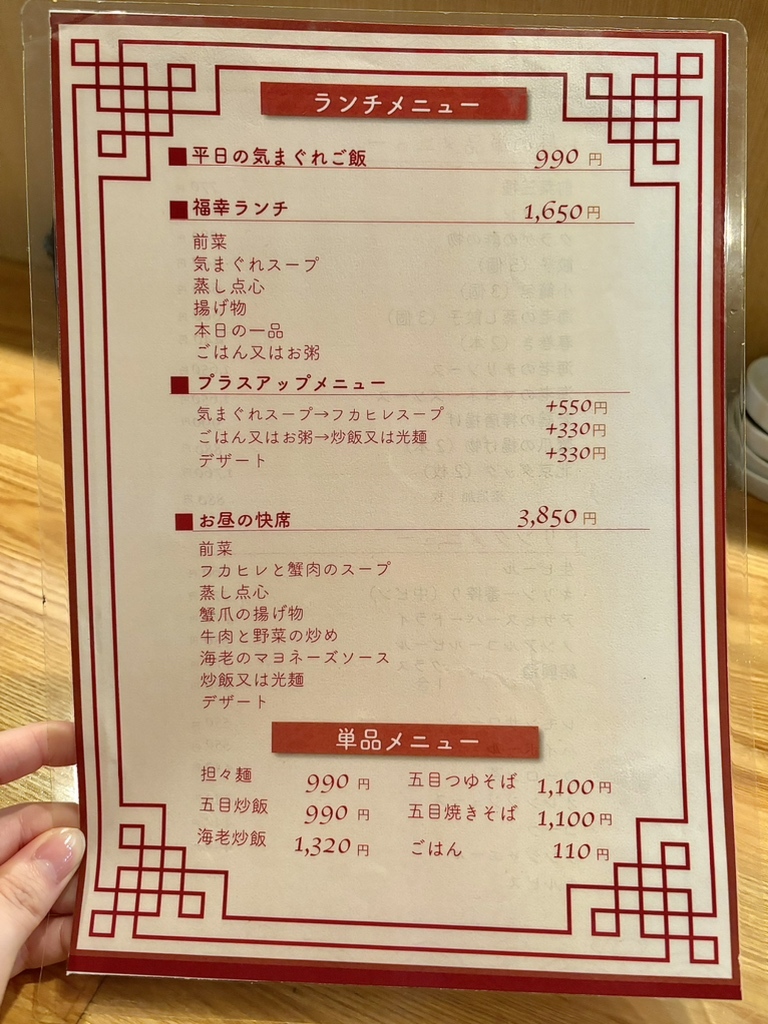 ランチメニュー
■平日の気まぐれご飯 990円
■福幸ランチ 1,650円
前菜
気まぐれスープ
蒸し点心
揚げ物
本日の一品
ごはん又はお粥
■プラスアップメニュー
気まぐれスープ→フカヒレスープ +550円
ごはん又はお粥→炒飯又は光麺 +330円
デザート +330円
■お昼の快席 3,850円
前菜
フカヒレと蟹肉のスープ
蒸し点心
蟹爪の揚げ物
牛肉と野菜の炒め
海老のマヨネーズソース
炒飯又は光麺
デザート
単品メニュー
担々麺 990円 五目つゆそば 1,100円
五目炒飯 990円 五目焼きそば 1,100円
海老炒飯 1,320円 ごはん 110円